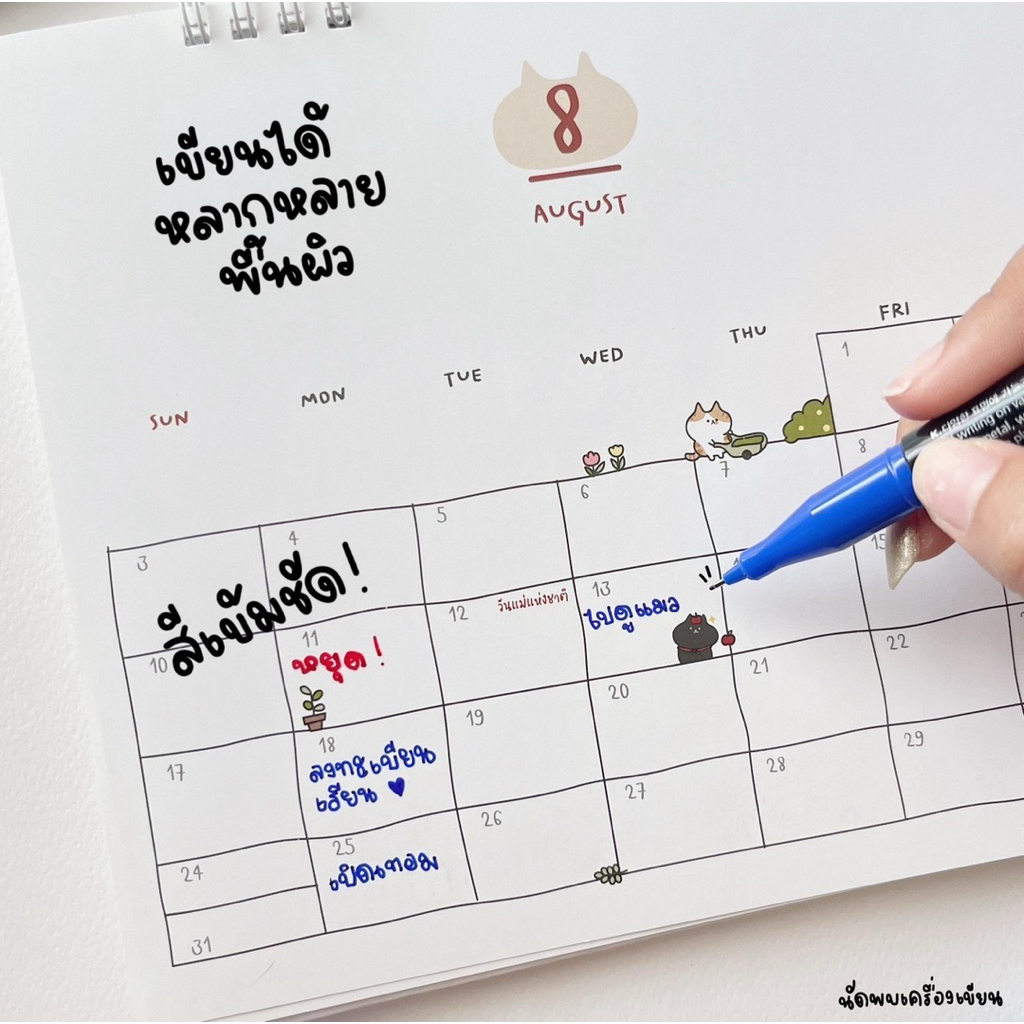 เขียนได้
หลากหลาย
พื้นผิว
8
AUGUST
SUN MON TUE WED THU FRI
1
3 4 5 6 7 8
สีเข้มชัด!
10 11 12 13 15
วันแม่แห่งชาติ
หยุด!
ไปดูแมว
17 18 19 20 21 22
ลงทะเบียน
เรียน ♥
24 25 26 27 28 29
เปิดเทอม
31
writing on
นัดพบเครื่องเขียน